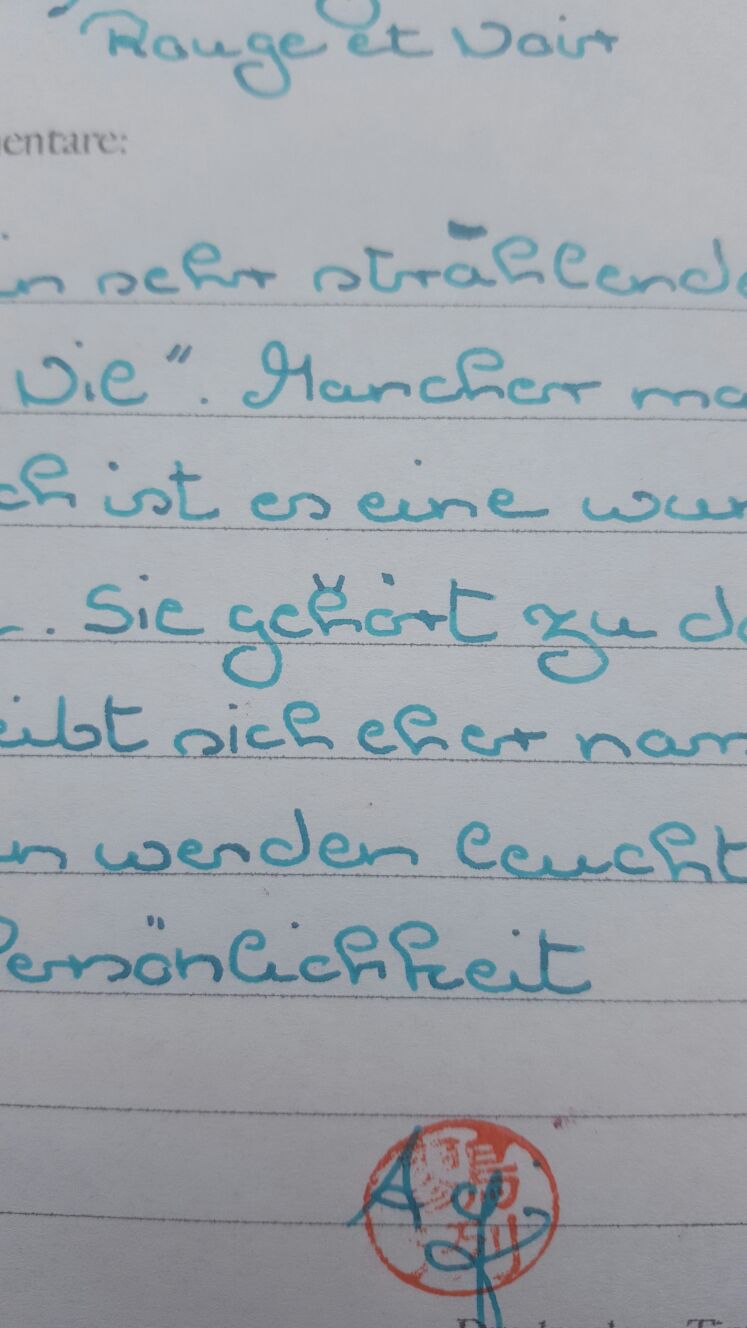 Rouge et Voir
entare:
in sehr strahlende
Vie". Mancher ma
ch ist es eine wun
. Sie gehört zu de
eibt sich eher nar
n werden leucht
Persönlichkeit